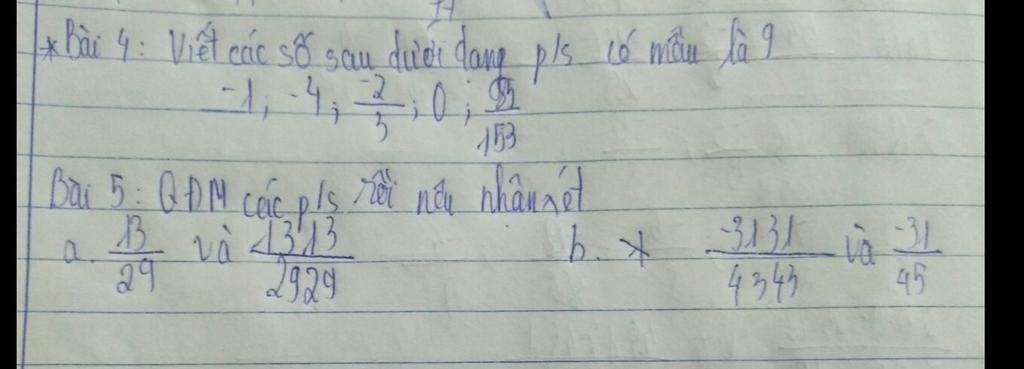 * Bài 4: Viết các số sau dưới dạng p/s có mẫu là 9
-1; -4; -2/3; 0; /153
Bài 5: QĐM các p/s rồi nêu nhân xét
a. 13/29 và 1313/2929 b. * -3131/4343 và -31/45